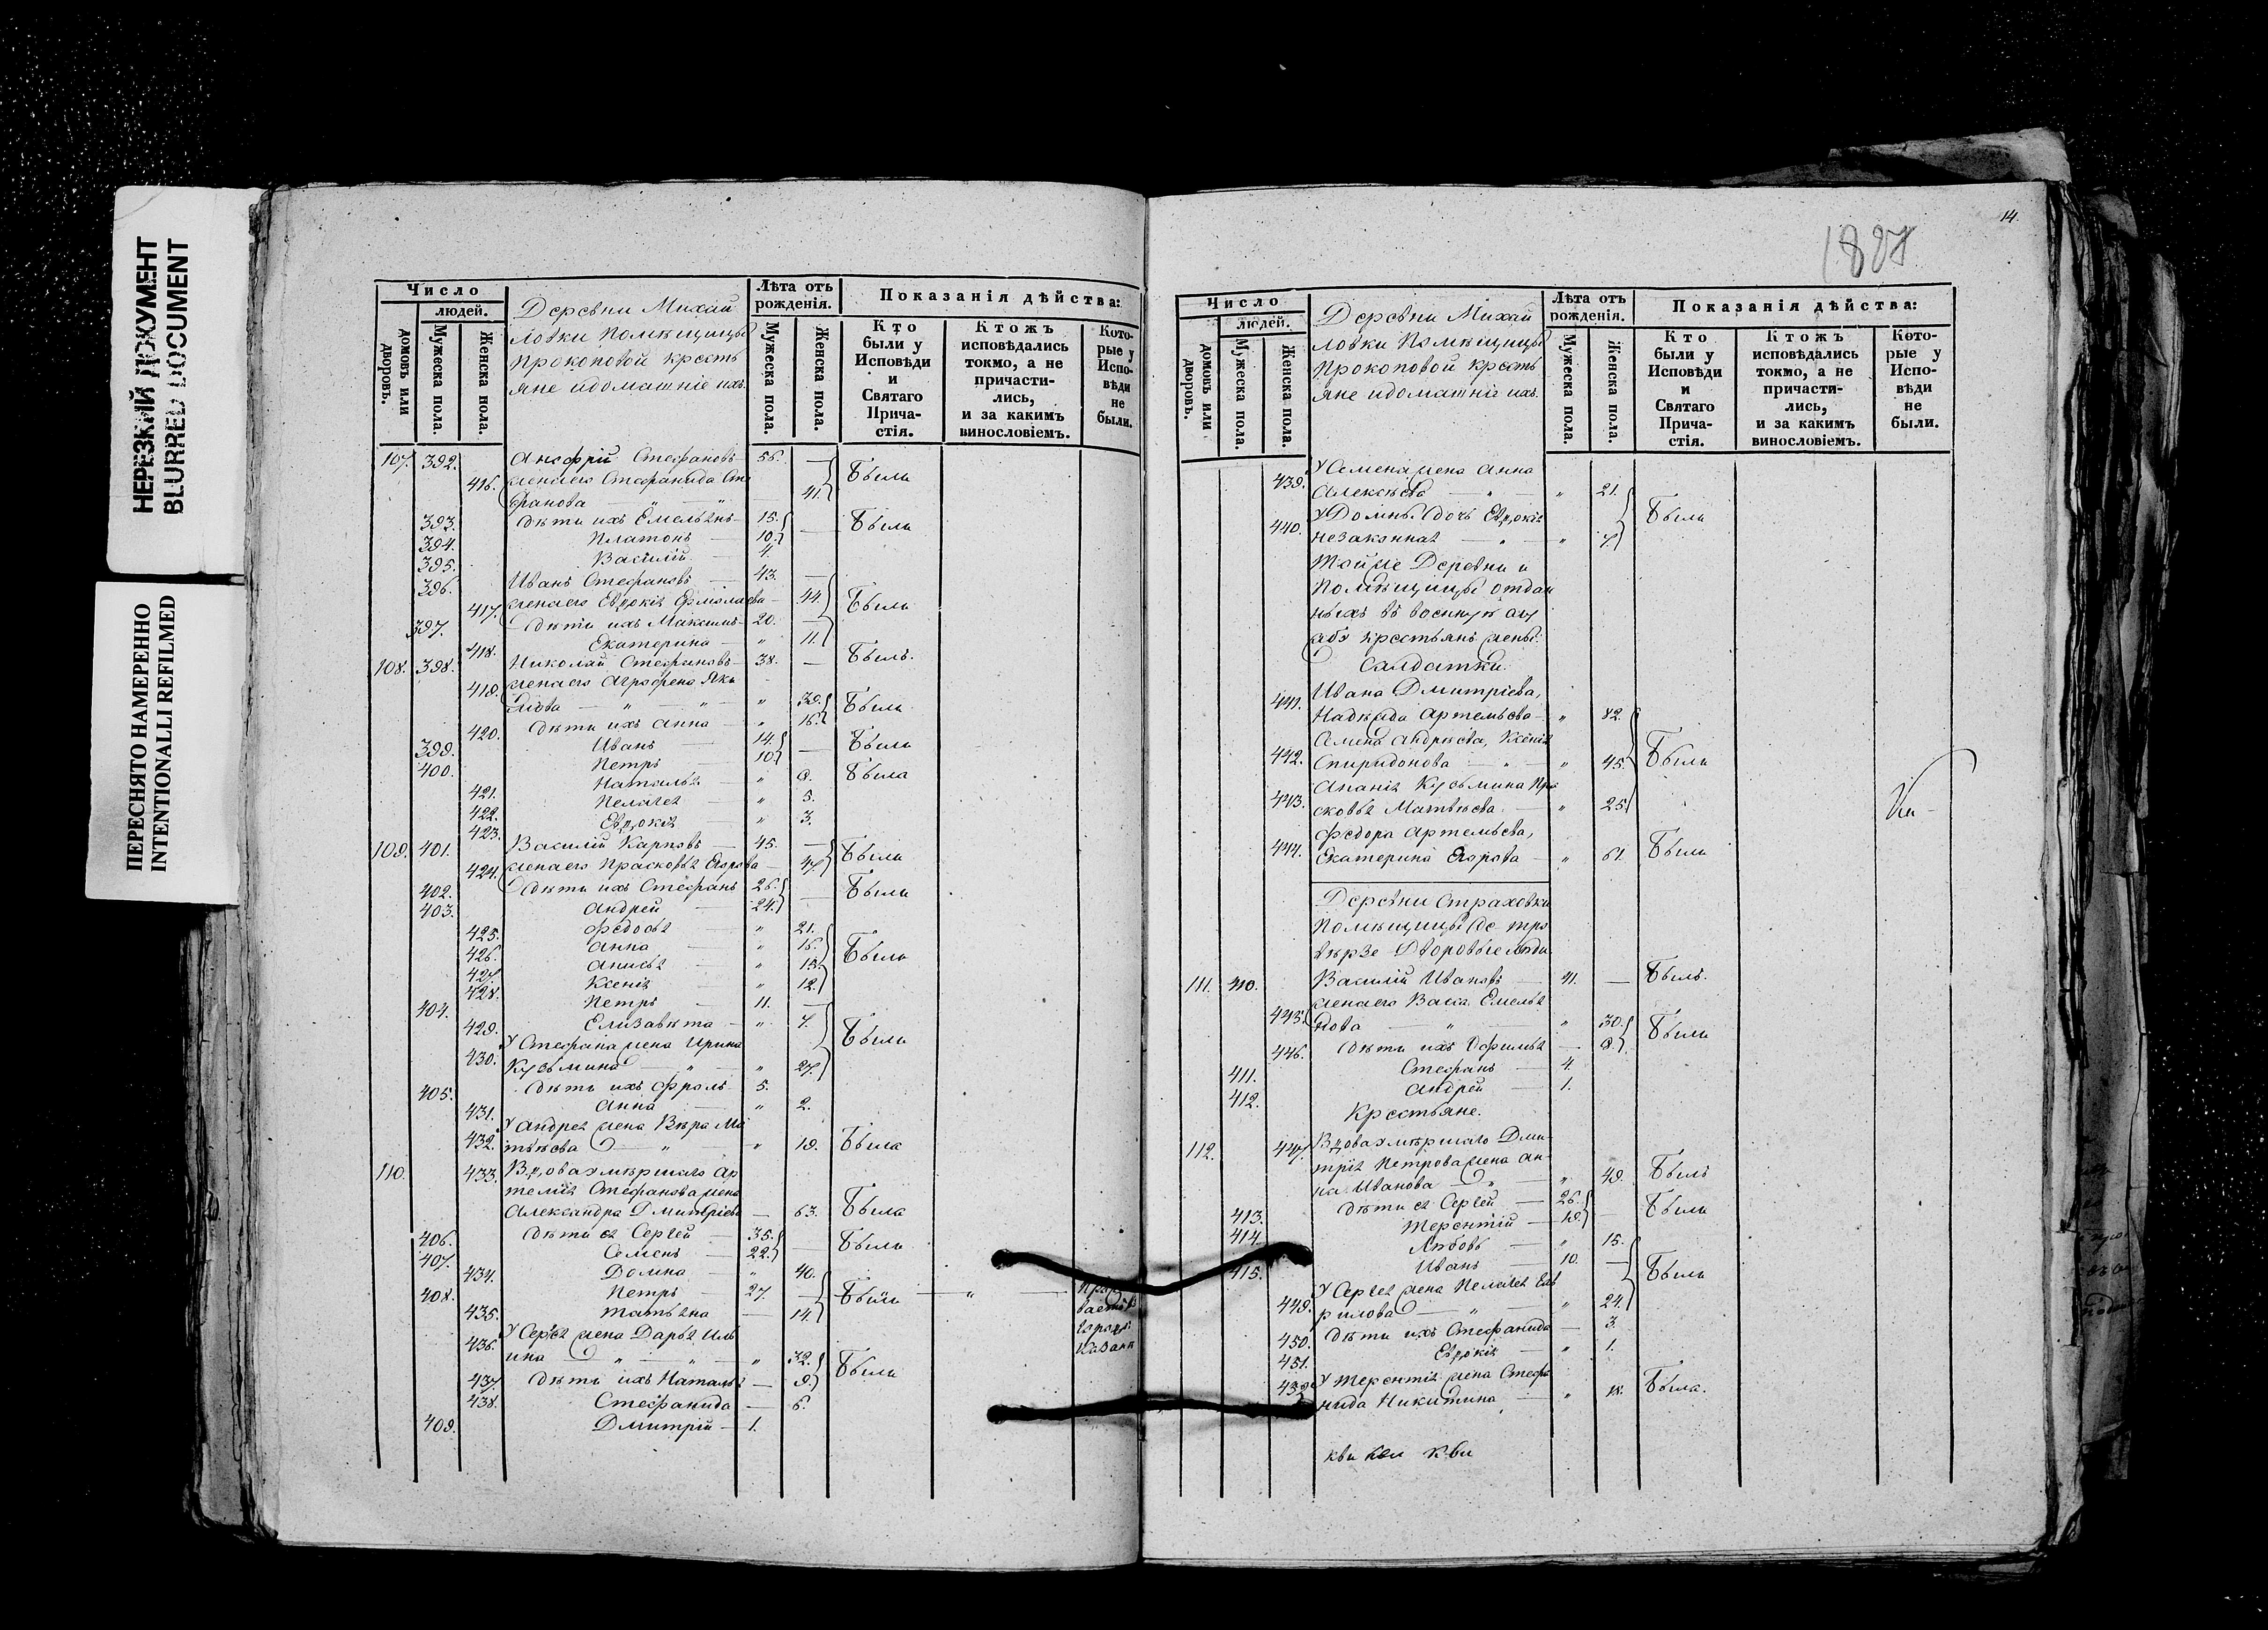 НЕРЕЗКИЙ ДОКУМЕНТ
BLURRED DOCUMENT
ПЕРЕСНЯТО НАМЕРЕННО
INTENTIONALLI REFILMED
Число
людей.
домовъ или дворовъ.
Мужеска пола.
Женска пола.
Деревни Михай
ловки Помѣщицы
Прокоповой кресть
яне идомашніе ихъ.
Лѣта отъ рожденія.
Мужеска пола.
Женска пола.
Показанія дѣйства:
Кто были у Исповѣди и Святаго Прича-стія.
Ктожъ исповѣдались токмо, а не причасти-лись, и за какимъ винословіемъ.
Кото-рые у Испо-вѣди не были.
107. 392. Анофрій Стефановъ 56. —
416. жена его Стефанида Сте
фанова — " 41. Были
393. дѣти ихъ Емельянъ 15. — Были
394. Платонъ — 10.
395. Василій — 4.
396. Иванъ Стефановъ — 43. —
417. жена его Евдокія Ермолаева — 44. Были
397. дѣти ихъ Максимъ 20. —
418. Екатерина — " 11.
108. 398. Николай Стефановъ 38. — Былъ.
419. жена его Агрофена Яко
влева — " — " — " 39. Были
420. дѣти ихъ Анна — " 16.
399. Иванъ — 14. — Были
400. Петръ — 10.
421. Наталья — " 9. Была
422. Пелагея — " 5.
423. Евдокія — " 3.
109. 401. Василій Карповъ — 45. — Были
424. жена его Прасковья Егорова — 47.
402. Дѣти ихъ Стефанъ 26. — Были
403. Андрей — 24.
425. Федосья — " 21.
426. Анна — " 16. Были
427. Анисья — " 15.
428. Ксенія — " 12.
404. Петръ — 11. —
429. Елизавѣта — " 7. Были
430. У Стефана жена Ирина
Кузьмина — " — " 27.
405. дѣти ихъ Фролъ 5.
431. Анна — " 2.
432. У Андрея жена Вѣра Ма
твѣева — " — " 19. Была
110. 433. Вдова умѣршаго Ар
темія Стефанова жена
Александра Дмитріева — 63. Была
406. дѣти ея Сергей — 35. — Были
407. Семенъ — 22.
434. Домна — " 40.
408. Петръ — 27. — Были — " —
435. Татьяна — 14.
436. У Сергея жена Дарья Иль
ина — " — " — " 32. Были
437. дѣти ихъ Наталья — 9.
438. Стефанида — 6.
409. Дмитрій — 1.
14.
Число
людей.
домовъ или дворовъ.
Мужеска пола.
Женска пола.
Деревни Михай
ловки Помѣщицы
Прокоповой Кресть
яне идомашніе ихъ.
Лѣта отъ рожденія.
Мужеска пола.
Женска пола.
Показанія дѣйства:
Кто были у Исповѣди и Святаго Прича-стія.
Ктожъ исповѣдались токмо, а не причасти-лись, и за какимъ винословіемъ.
Кото-рые у Испо-вѣди не были.
439. У Семена жена Анна
Алексѣева — " — " 21.
440. У Домны дочь Евдокія Были
незаконная — " — " 7.
Той же Деревни и
Помѣщицы отдан
ныхъ въ военную слу
жбу крестьянъ жены:
Салдатки.
441. Ивана Дмитріева,
Надежда Артемьева — " 82.
442. Семена Андрѣева, Ксенія
Спиридонова — " — " 45. Были
443. Ананія Кузьмина Пра
сковья Матвѣева — " 25.
444. Федора Артемьева,
Екатерина Егорова — " 61. Были
Деревни Страховки
Помѣщицы Де-тро
Дворовые люди.
111. 410. Василій Ивановъ — 41. — Былъ.
445. жена его Васса Емелья
нова — " — " 30. Были
446. дѣти ихъ Офимья — 9.
411. Стефанъ — 4.
412. Андрей — 1.
Крестьяне.
112. 447. Вдова умѣршаго Дми
трія Петрова жена Ан
на Иванова — " — " 49. Былъ
413. дѣти ея Сергей — 26. — Были
414. Терентій — 19.
Любовь — " 15.
415. Иванъ — 10. — Были
449. У Сергея жена Пелагея
рилова — " — " 24.
450. дѣти ихъ Стефанида — 3.
451. Евдокія — " 1.
452. У Терентія жена Стефа
нида Никитина — " 18. Была.